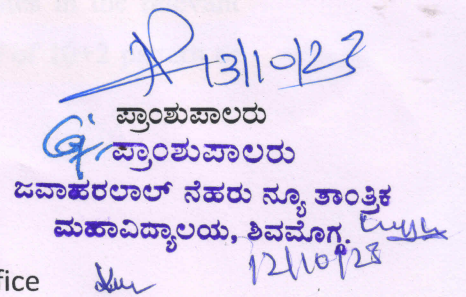 13/10/23
ಪ್ರಾಂಶುಪಾಲರು
ಪ್ರಾಂಶುಪಾಲರು
ಜವಾಹರಲಾಲ್ ನೆಹರು ನ್ಯೂ ತಾಂತ್ರಿಕ
ಮಹಾವಿದ್ಯಾಲಯ, ಶಿವಮೊಗ್ಗ.
12/10/23
fice